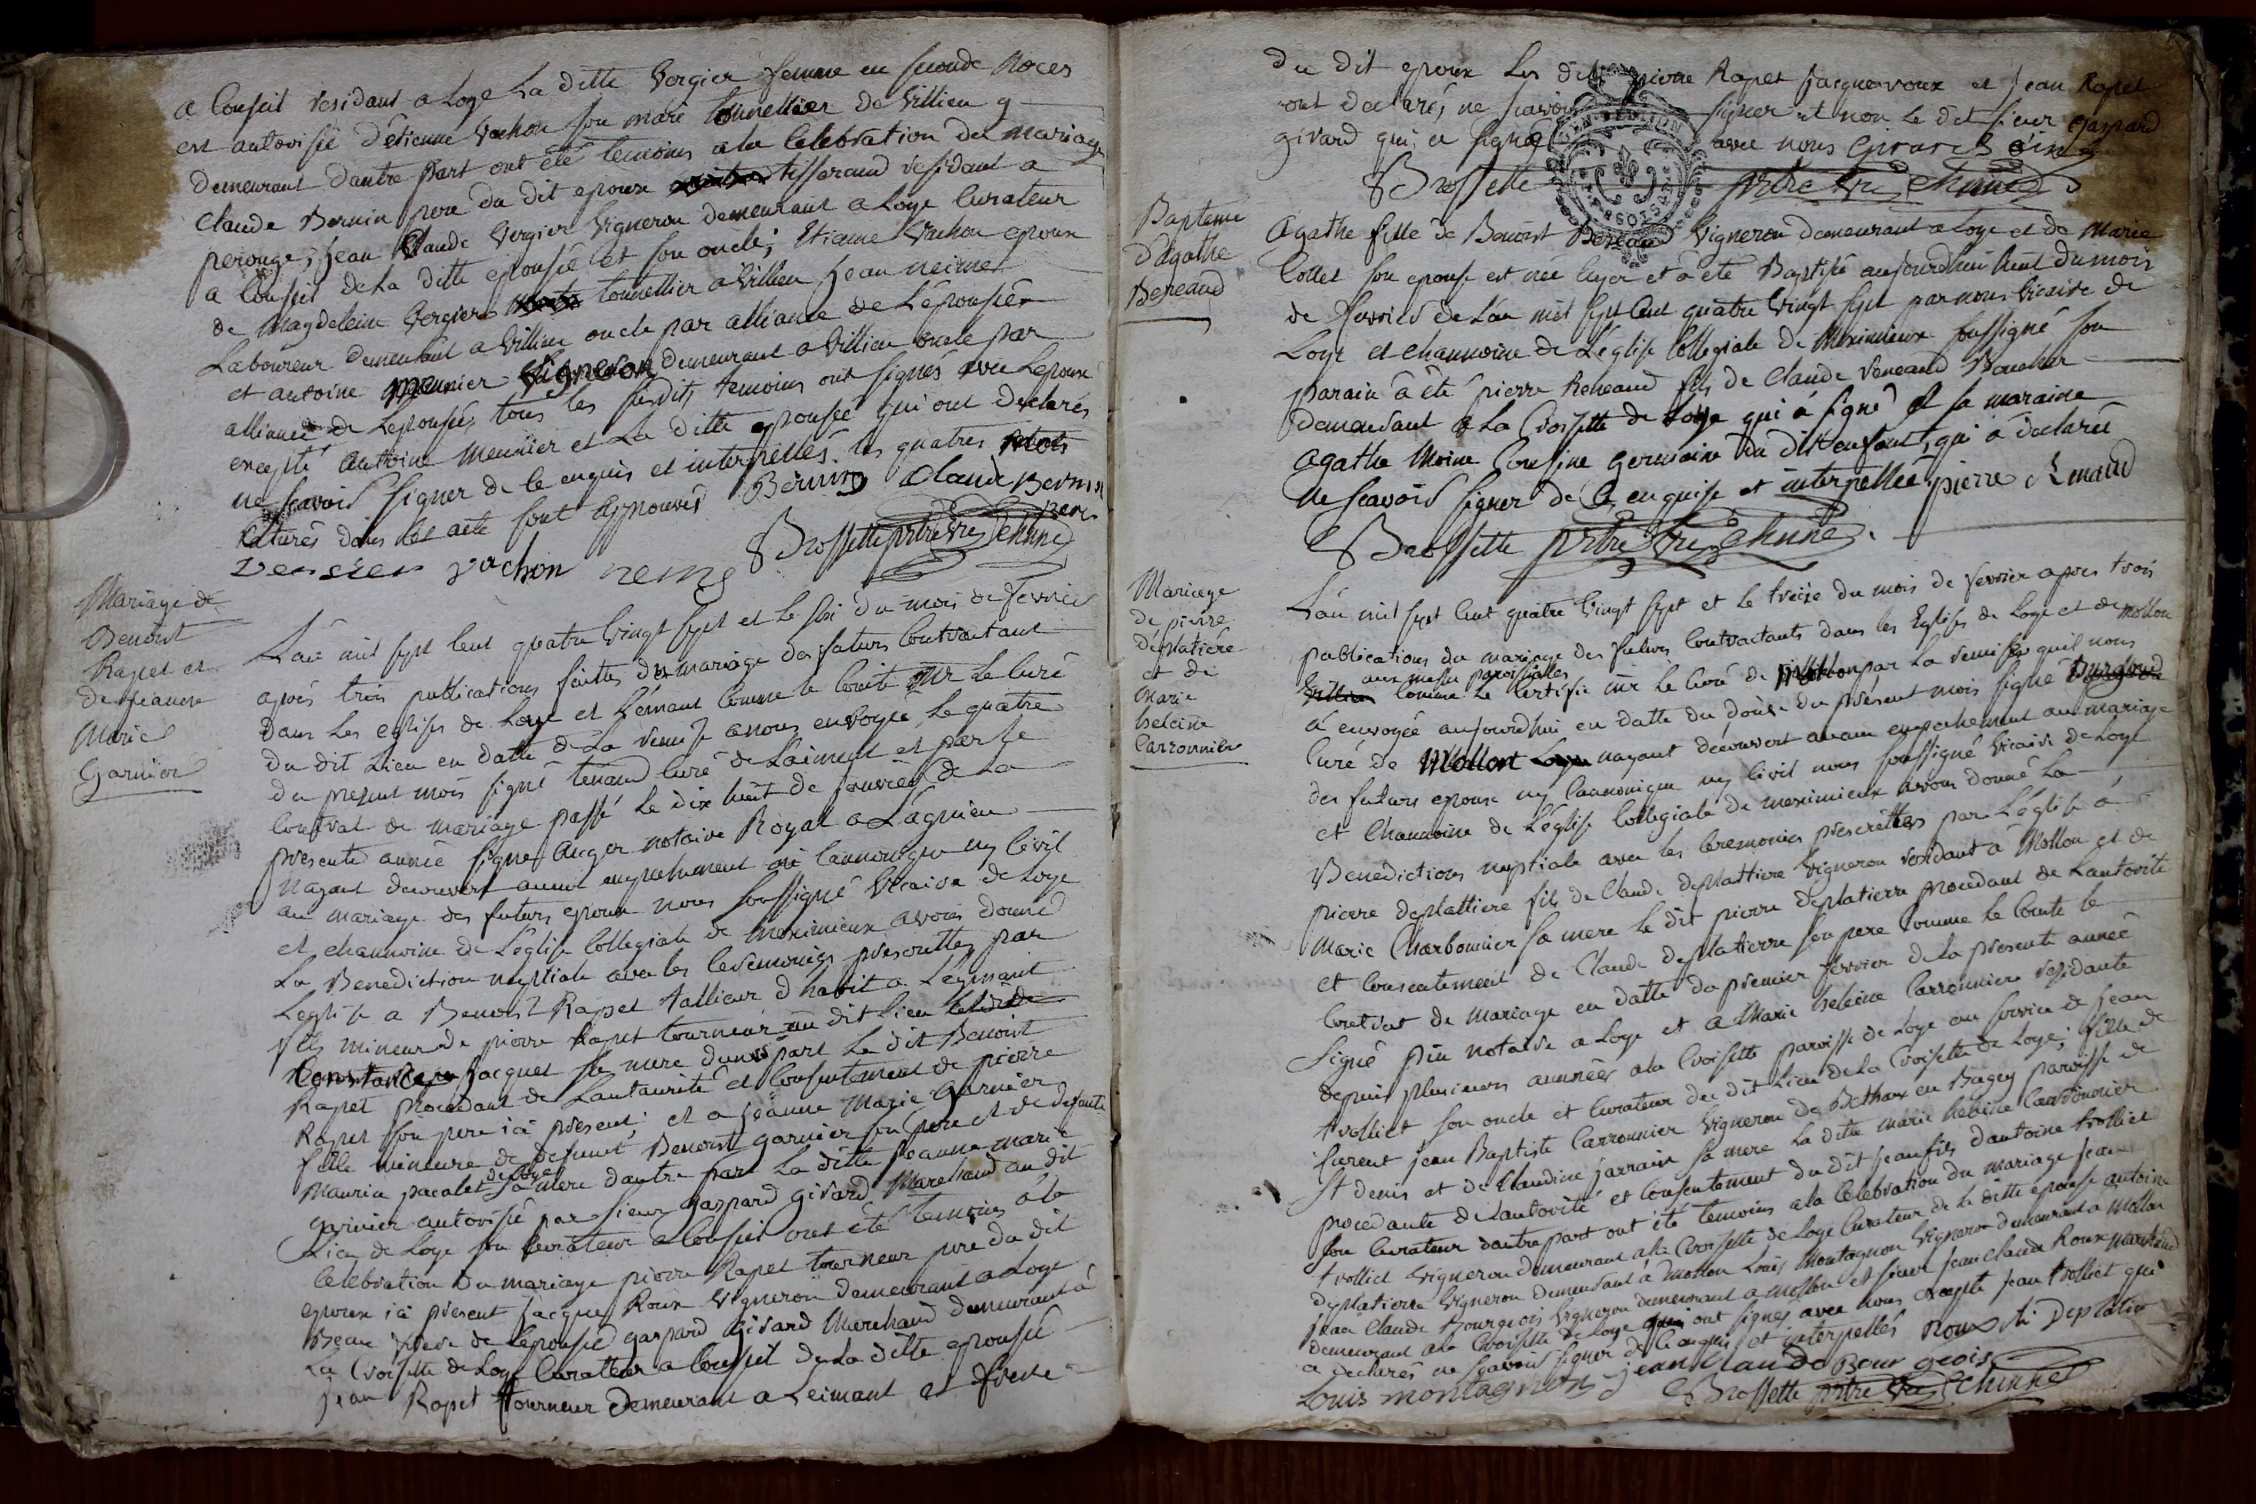 a Conseil residant a Loye La ditte Vergier femme en seconde Noces
est autorisée d'étienne Vachon son mari tonnellier de Villieu y
demeurant dautre part ont été temoins a la Celebration du mariage
Claude Bernin pere du dit epoux tisserand residant a
perouge; jean Claude Vergier Vigneron demeurant a Loye Curateur
a Conseil de La ditte epousée et son oncle; Etienne Vachon epoux
de Magdeleine Vergier tonnellier a Villieu jean neime
Laboureur demeurant a Villieu oncle par alliance de L'épousée
et antoine meunier Vigneron demeurant a Villieu oncle par
alliance de Lepousée, tous les susdits temoins ont signés avec Lepoux
excepté antoine Meunier et La ditte epousée qui ont declarés
ne scavoir signer de ce enquis et interpellés. les quatres mots
Raturés dans cet acte sont approuvés Bernin Claude Bernin
Vergier vachon neime Brossette prtre vre chnne
Mariage de
Benoist
Rapet et
de jeanne
Marie
Garnier
L'an mil sept Cent quatre Vingt sept et le six du mois de fevrier
après trois publications faittes du mariage des futurs Contractant
dans Les eglises de Loye et Leimant Comme le Conste Mr Le Curé
du dit Lieu en datte de La remise a nous envoyée Le quatre
du present mois signé tenand Curé de Laiment et par Le
Contrat de mariage passé Le dix huit de janvier de La
presente année signé auger notaire Royal a Lagnieu
nayant decouvert aucun empechement ni Cannonique ny Civil
au mariage des futurs epoux nous soussigné Vicaire de Loye
et channoine de L'église Collegiale de meximieux avons donné
La Benediction nuptiale avec les Ceremonies prescrittes par
Leglise a Benoist Rapet tallieur d'habit a Leymant
fils mineur de pierre Rapet tourneur au dit Lieu et de
Constance jacquet sa mere dune part Le dit Benoist
Rapet procedant de Lautaurité et Consentement de pierre
Rapet son pere ici present; et a jeanne Marie Garnier
fille mineure de defunt Benoist garnier son pere et de defunte
Mauria pacalet de Loye sa mere dautre part La ditte jeanne marie
garnier autorisée par sieur gaspard girard Marchand au dit
Lieu de Loye son Curateur a Conseil ont été temoins a la
Celebration du mariage pierre Rapet tourneur pere du dit
epoux ici present jacques Roux Vigneron demeurant a Loye
Beau frere de Lepousée gaspard girard Marchand demeurant à
La Croisette de Loye Curateur a Conseil de La ditte epousée
jean Rapet tourneur demeurant a Leimant et frere
du dit epoux Les dits pierre Rapet jacque roux et jean Rapet
ont declarés ne scavoir signer et non Le dit sieur gaspard
girard qui a signé avec nous Girard ainé
Brossette prtre vre chnne
Bapteme
d'agathe
Beneaud
Agathe fille de Benoist Vigneron demeurant a Loye et de Marie
Collet son epouse est née hyer et a été Baptisée aujourdhui huit du mois
de fevrier de L'an mil sept Cent quatre Vingt sept par nous Vicaire de
Loye et channoine de L'église Collegiale de Meximieux soussigné son
parain à été pierre Reneaud fils de Claude Reneaud
demeurant a La Croisette de Loye qui à signé et sa maraine
agathe Moine Cousine germaine du dit enfant, qui a declarée
ne scavoir signer de ce enquise et interpellée pierre Renaud
Brossette prtre vre chnne
Mariage
de pierre
déplatière
et de
Marie
heleine
Carronnier
L'an mil sept Cent quatre Vingt sept et le treize du mois de fevrier apres trois
publications du mariage des futurs Contractants dans les Eglises de Loye et de mollon
aux messes paroissiales
Comme Le Certifie mr Le Curé de Mollon par La remise quil nous
á envoyée aujourdhui en datte du douze du present mois signé
Curé de Mollont nayant decouvert aucun empechement au mariage
des futurs epoux ny Cannonique ny Civil nous soussigné Vicaire de Loye
et Channoine de L'église Collegiale de meximieux avons donné La
Benediction nuptiale avec les Ceremonies prescrittes par L'église à
pierre deplattiere fils de Claude deplattiere Vigneron residant à Mollon et de
Marie Charbonnier sa mere Le dit pierre deplatiere procedant de Lautorité
et Consentement de Claude deplatierre son pere Comme Le Conste le
Contrat de mariage en datte du premier fevrier de La presente année
signé notaire a Loye et a Marie heleine Carronnier residante
depuis plusieurs années a la Croisette paroisse de Loye au service de jean
trolliet son oncle et Curateur du dit Lieu de La Croisette de Loye; fille de
jean Baptiste Carronnier Vigneron de en Bugey paroisse de
St denis et de Claudine jarrain sa mere La ditte marie heleine Carronnier
procedante de Lautorité et Consentement du dit jean fils dantoine trolliet
son Curateur dautre part ont été temoins a la Celebration du mariage jean
trolliet Vigneron demeurant a la Croisette de Loye Curateur de La ditte epouse antoine
deplatierre Vigneron demeurant à Mollon Louis Montagnon Vigneron demeurant a Mollon
jean Claude Bourgeois Vigneron demeurant a mollon et sieur jean claude Roux marchand
demeurant a la Croisette de Loye ont signés avec nous excepté jean trolliet qui
a declarés ne scavoir signer de ce enquis et interpellés Roux Deplatier
Louis montagnon jean Claude Bourgeois
Brossette prtre vre chnne